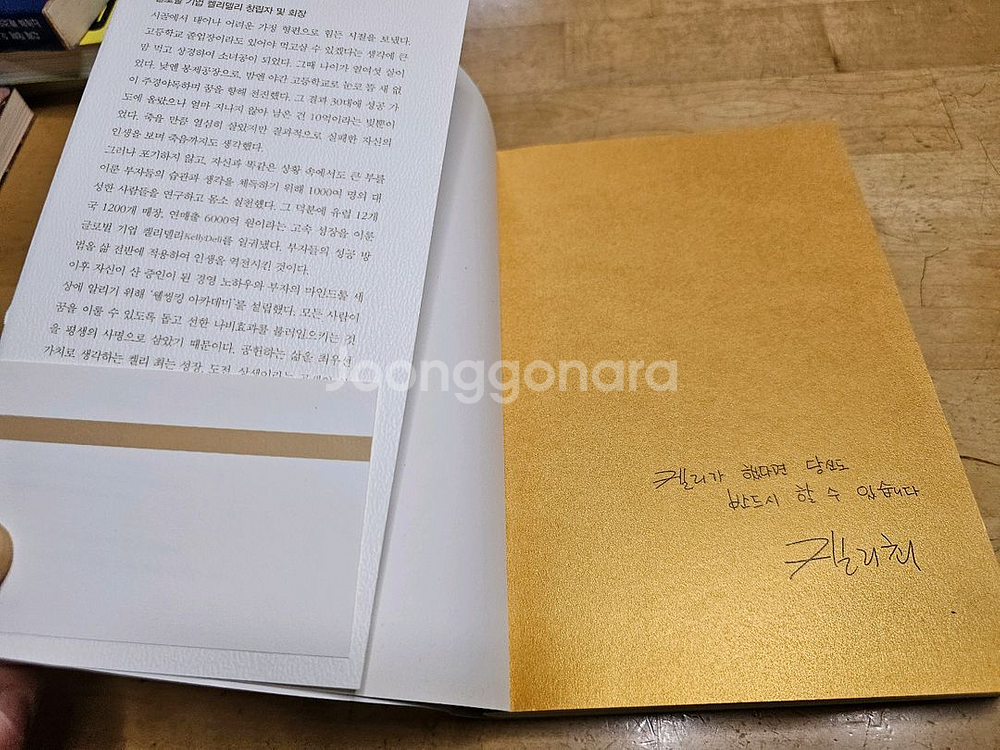 글로벌 기업 켈리델리 창립자 및 회장
시골에서 태어나 어려운 가정 형편으로 힘든 시절을 보냈다.
고등학교 졸업장이라도 있어야 먹고살 수 있겠다는 생각에 큰
맘 먹고 상경하여 소녀공이 되었다. 그때 나이가 열여섯 살이
었다. 낮엔 봉제공장으로, 밤엔 야간 고등학교로 눈코 뜰 새 없
이 주경야독하며 꿈을 향해 전진했다. 그 결과 30대에 성공 가
도에 올랐으나 얼마 지나지 않아 남은 건 10억이라는 빚뿐이
었다. 죽을 만큼 열심히 살았지만 결과적으로 실패한 자신의
인생을 보며 죽음까지도 생각했다.
그러나 포기하지 않고, 자신과 똑같은 상황 속에서도 큰 부를
이룬 부자들의 습관과 생각을 체득하기 위해 1000여 명의 대
성한 사람들을 연구하고 몸소 실천했다. 그 덕분에 유럽 12개
국 1200개 매장, 연매출 6000억 원이라는 고속 성장을 이룬
글로벌 기업 켈리델리KellyDeli를 일궈냈다. 부자들의 성공 방
법을 삶 전반에 적용하여 인생을 역전시킨 것이다.
이후 자신이 산 증인이 된 경영 노하우와 부자의 마인드를 세
상에 알리기 위해 '웰씽킹 아카데미'를 설립했다. 모든 사람이
꿈을 이룰 수 있도록 돕고 선한 나비효과를 불러일으키는 것
을 평생의 사명으로 삼았기 때문이다. 공헌하는 삶을 최우선
가치로 생각하는 켈리 최는 성장, 도전, 상생이라는
Joonggonara
켈리가 했다면 당신도
반드시 할 수 있습니다
켈리최